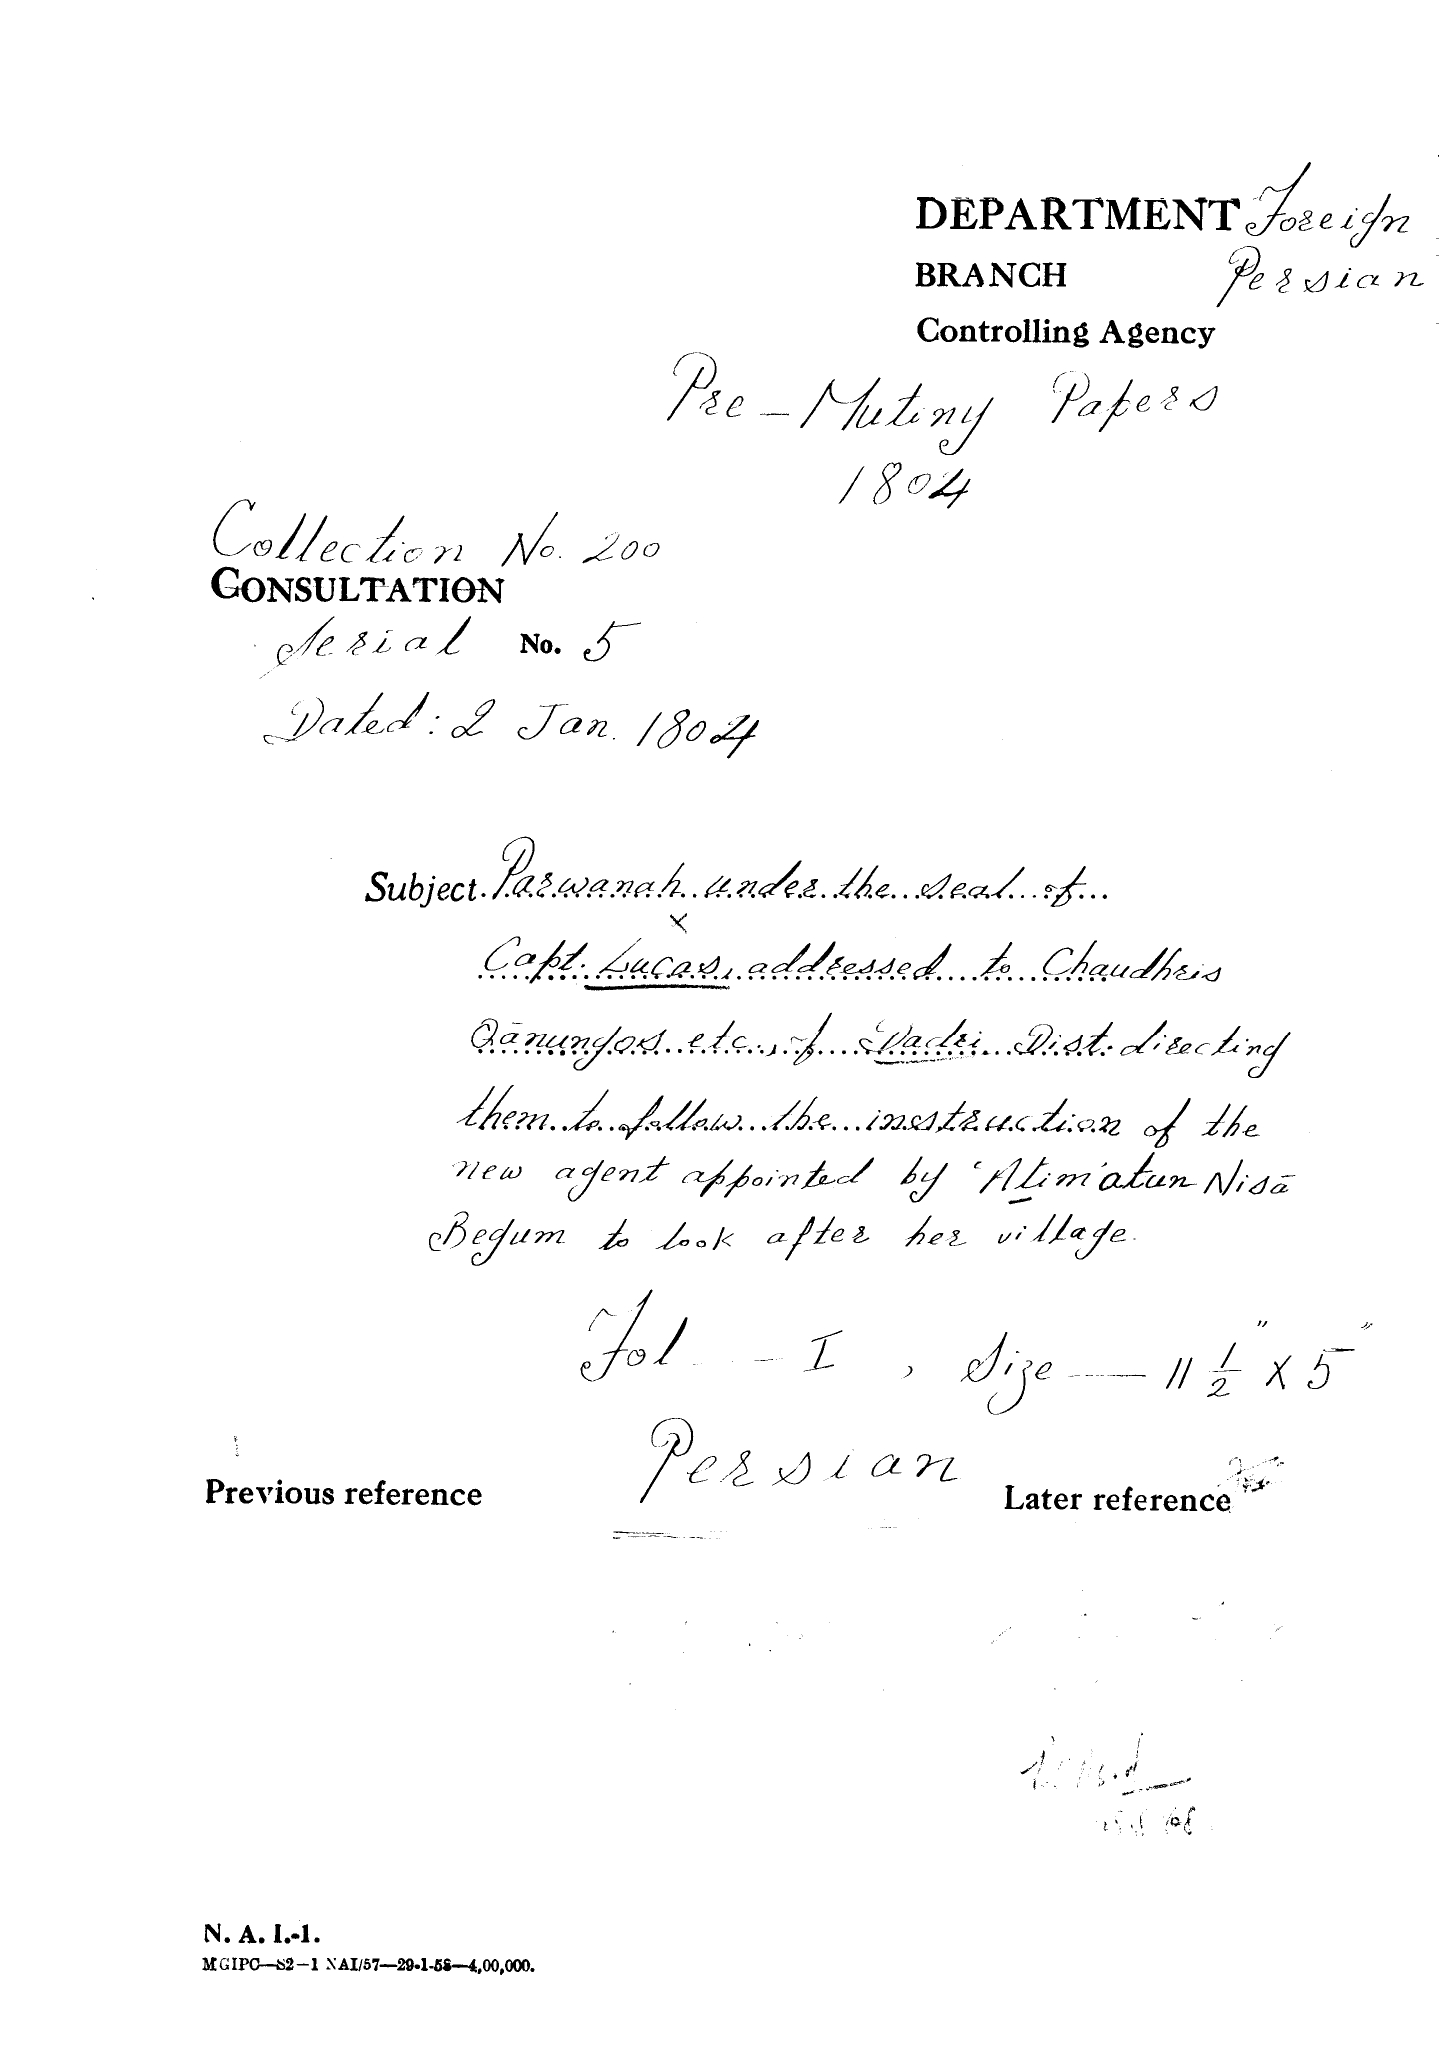 DEPARTMENT Foreign
BRANCH Persian
Controlling Agency
Pre-Mutiny Papers
1804
Collection No. 200
CONSULTATION
Serial No. 5
Dated: 2 Jan. 1804
Subject. Parwanah under the seal of
x
Capt. Lucas, addressed to Chaudhris
Qānungos etc., of Dadri Dist. directing
them to follow the instruction of the
new agent appointed by 'Atim'atun Nisā
Begum to look after her village.
Fol - I, Size — 11 1/2" X 5"
Persian
Previous reference
Later reference
N. A. I.-1.
MGIPC—S2—1 NAI/57—29-1-58—4,00,000.